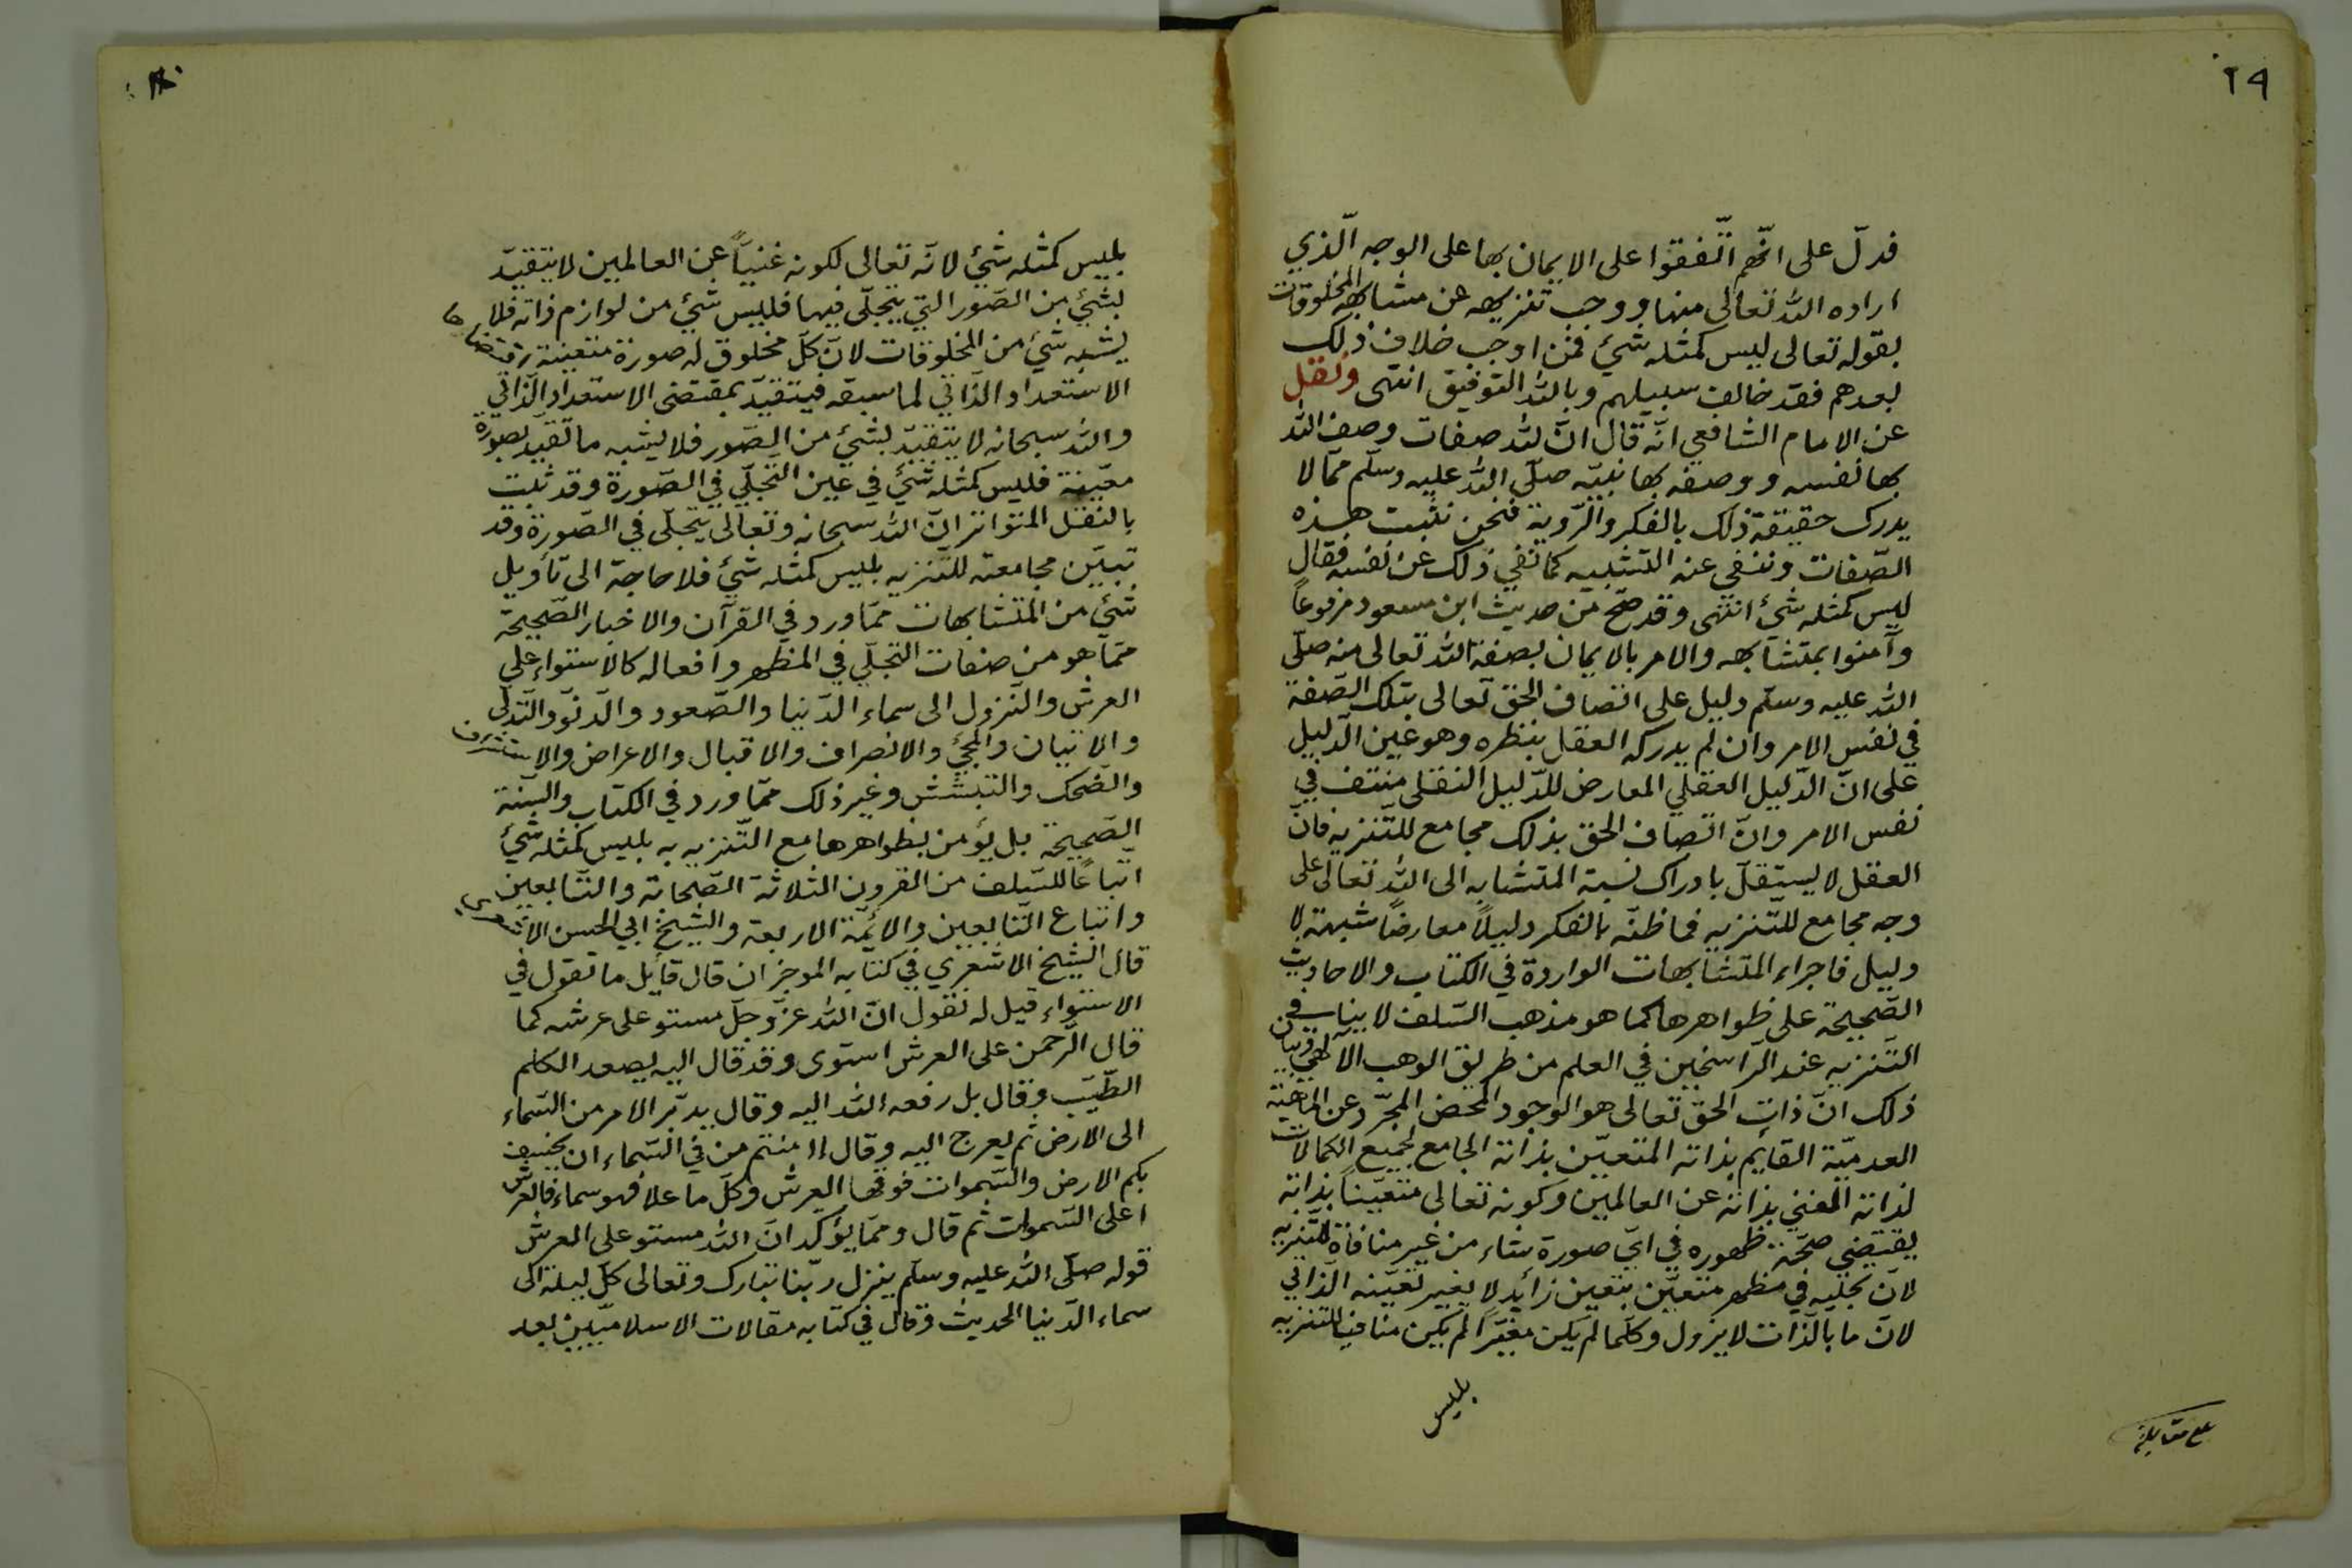 ٢٩
فدلّ على انّهم اتّفقوا على الايمان بها على الوجه الّذي
اراده الله تعالى منها ووجب تنزيهه عن مشابهة المخلوقات
بقوله تعالى ليس كمثله شئ فمن اوجب خلاف ذلك
بعدهم فقد خالف سبيلهم وبالله التوفيق انتهى ونقل
عن الامام الشافعي انّه قال انّ لله صفات وصف الله
بها نفسه ووصفه بها نبيّه صلّى الله عليه وسلّم ممّا لا
يدرك حقيقة ذلك بالفكر والرّوية فنحن نثبت هذه
الصّفات وننفي عنه التشبيه كما نفي ذلك عن نفسه فقال
ليس كمثله شئ انتهى وقد صحّ من حديث ابن مسعود مرفوعاً
وآمنوا بمتشابهه والامر بالايمان بصفة الله تعالى منه صلّى
الله عليه وسلّم دليل على اتصاف الحق تعالى بتلك الصّفة
في نفس الامر وان لم يدركه العقل بنظره وهو عين الدّليل
على انّ الدّليل العقلي المعارض للدّليل النقلى منتف في
نفس الامر وانّ اتّصاف الحق بذلك مجامع للتّنزيه فانّ
العقل لا يستقلّ بادراك نسبة المتشابه الى الله تعالى على
وجه مجامع للتّنزيه فما ظنّه بالفكر دليلاً معارضاً شبهة لا
دليل فاجراء المتشابهات الواردة في الكتاب والاحاديث
الصّحيحة على ظواهرها كما هو مذهب السّلف لا ينافي
التّنزيه عند الرّاسخين في العلم من طريق الوهب الآلهي وبيان
ذلك انّ ذات الحق تعالى هو الوجود المحض المجرّد عن الماهيّة
العدميّة القايم بذاته المتعيّن بذاته الجامع لجميع الكمالات
لذاته الغني بذاته عن العالمين وكونه تعالى متعيّناً بذاته
يقتضي صحّة ظهوره في ايّ صورة شاء من غير منافاة للتّنزيه
لانّ تجلّيه في مظهر متعيّن بتعين زايد لا يغير تعيّنه الذّاتي
لانّ ما بالذّات لا يزول وكلّما لم يكن مغيّراً لم يكن منافيا للتنزيه
بليس
بلغ مقابلة
بليس كمثله شئ لانّه تعالى لكونه غنيّاً عن العالمين لا يتقيّد
بشئ من الصّور التي يتجلّى فيها فليس شئ من لوازم ذاته فلا
يشبه شئ من المخلوقات لانّ كلّ مخلوق له صورة متعينة اقتضاها
الاستعداد الذّاتي لما سبقه فيتقيّد بمقتضى الاستعداد الذّاتي
والله سبحانه لا يتقيّد بشئ من الصّور فلا يشبه ما تقيد بصورة
معيّنة فليس كمثله شئ في عين التّجلّي في الصّورة وقد ثبت
بالنقل المتواتر انّ الله سبحانه وتعالى يتجلّى في الصّورة وقد
تبيّن مجامعته للتّنزيه بليس كمثله شئ فلا حاجة الى تأويل
شئ من المتشابهات ممّا ورد في القرآن والاخبار الصّحيحة
ممّا هو من صفات التجلّي في المظهر وافعاله كالاستواء على
العرش والنّزول الى سماء الدّنيا والصّعود والدّنوّ والتّدلّى
والاتيان والمجئ والانصراف والاقبال والاعراض والاستشراف
والضّحك والتبشّش وغير ذلك ممّا ورد في الكتاب والسّنة
الصّحيحة بل يؤمن بظواهرها مع التّنزيه به بليس كمثله شئ
اتباعاً للسّلف من القرون الثلاثة الصّحابة والتّابعين
واتباع التّابعين والائمّة الاربعة والشيخ ابي الحسن الاشعري
قال الشيخ الاشعري في كتابه الموجز ان قال قايل ما تقول في
الاستواء قيل له نقول انّ الله عزّ وجلّ مستو على عرشه كما
قال الرّحمن على العرش استوى وقد قال اليه يصعد الكلم
الطّيّب وقال بل رفعه الله اليه وقال يدبّر الامر من السّماء
الى الارض ثم يعرج اليه وقال اامنتم من في السّماء ان يخسف
بكم الارض والسّموات فوقها العرش وكلّ ما علا فهو سماء فالعرش
اعلى السّموات ثم قال وممّا يؤكد انّ الله مستو على العرش
قوله صلّى الله عليه وسلّم ينزل ربّنا تبارك وتعالى كلّ ليلة الى
سماء الدّنيا الحديث وقال في كتابه مقالات الاسلاميّين بعد